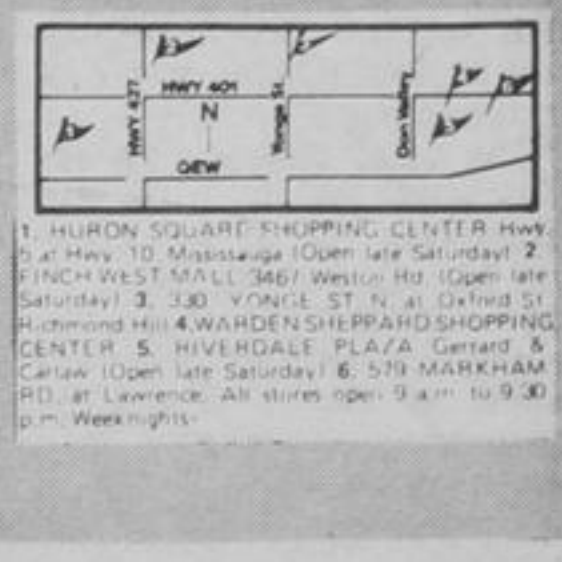 HWY 427
HWY 401
N
Yonge St.
Don Valley
QEW
1. HURON SQUARE SHOPPING CENTER Hwy.
5 at Hwy. 10, Mississauga (Open late Saturday) 2.
FINCH WEST MALL 3467 Weston Rd. (Open late
Saturday) 3. 330 YONGE ST. N. at Oxford St.
Richmond Hill 4. WARDEN SHEPPARD SHOPPING
CENTER 5. RIVERDALE PLAZA Gerrard &
Carlaw (Open late Saturday) 6. 579 MARKHAM
RD. at Lawrence. All stores open 9 a.m. to 9:30
p.m. Weeknights.